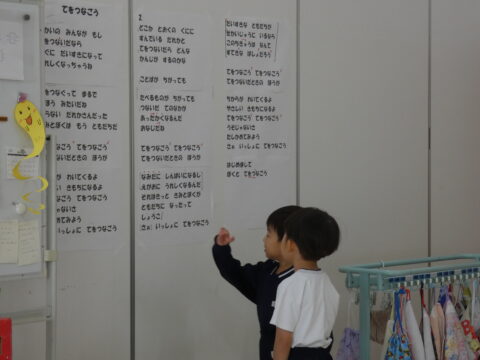 てをつなごう
かいの みんなが もし
をつないだなら
ぐに だいすきになって
れしくなっちゃうね
をつなぐって まるで
ほう みたいだね
らない だれかさんだった
みとぼくは もう ともだちだ
なごう てをつなごう
ないだときの ほうが
が わいてくるよ
きもちになるよ
ゃないさ
めてみよう
いっしょに てをつなごう
2
どこか とおくの くにに
すんでいる だれかと
てをつないだら どんな
かんじが するのかな
ことばが ちがっても
たべものが ちがっても
てをつなげば
あったかくなるんだ
おなじだね
てをつなごう てをつなごう
てをつないだときの ほうが
なみだに しんぱいになるし
えがおに うれしくなるんだ
それはきっと きみとぼくが
ともだちに なったって
しょうこ
さぁ いっしょに てをつなごう
だいすきな ともだちが
せかいじゅうに いるなら
このちきゅうは なんて
すてきな ほしだろう
てをつなごう てをつなごう
てをつないだときの ほうが
ちからが わいてくるよ
やさしい きもちになるよ
てをつなごう てをつなごう
うそじゃないさ
たしかめてみよう
さぁ いっしょに てをつなごう
はじめまして
ぼくと てをつなごう